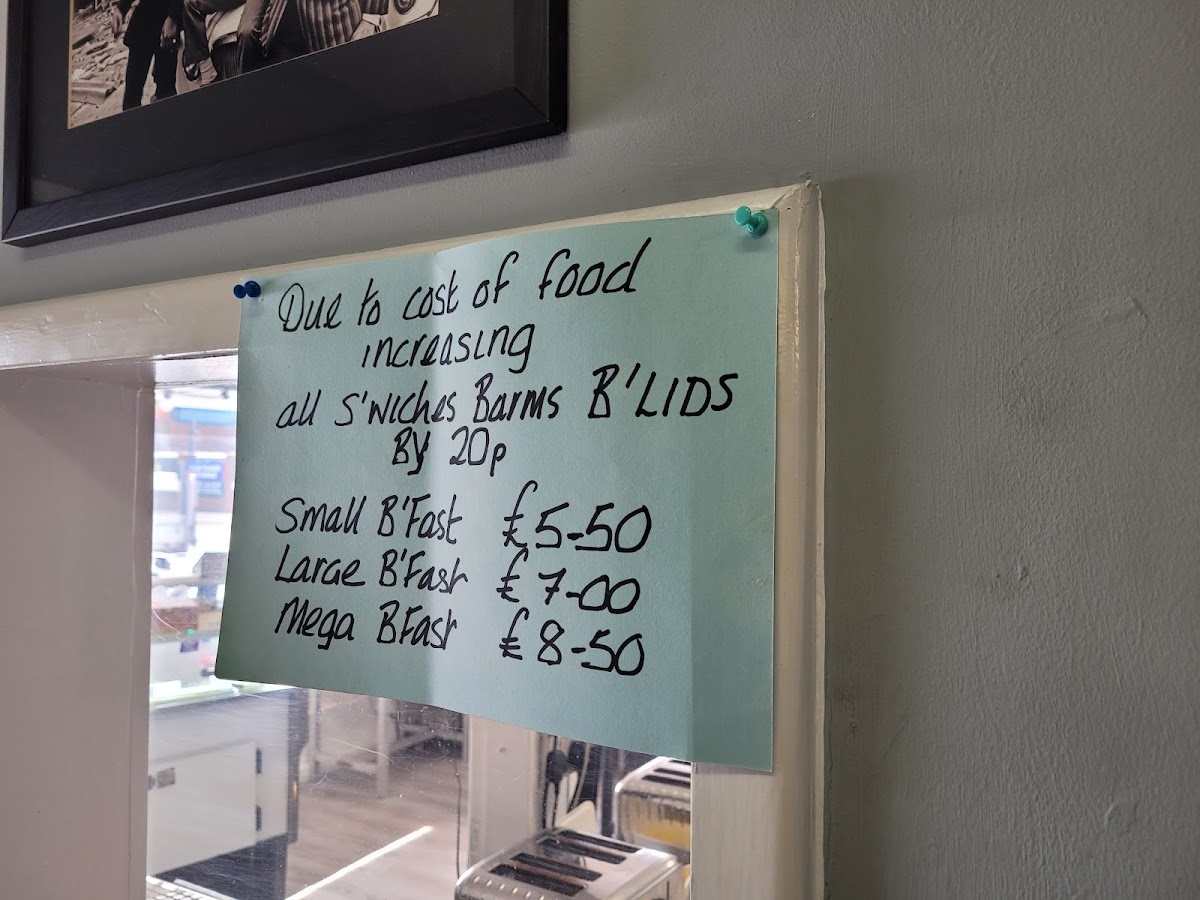 Due to cost of food
increasing
all S'wiches Barms B'LIDS
By 20p
Small B'Fast £5-50
Large B'Fast £7-00
Mega BFast £8-50